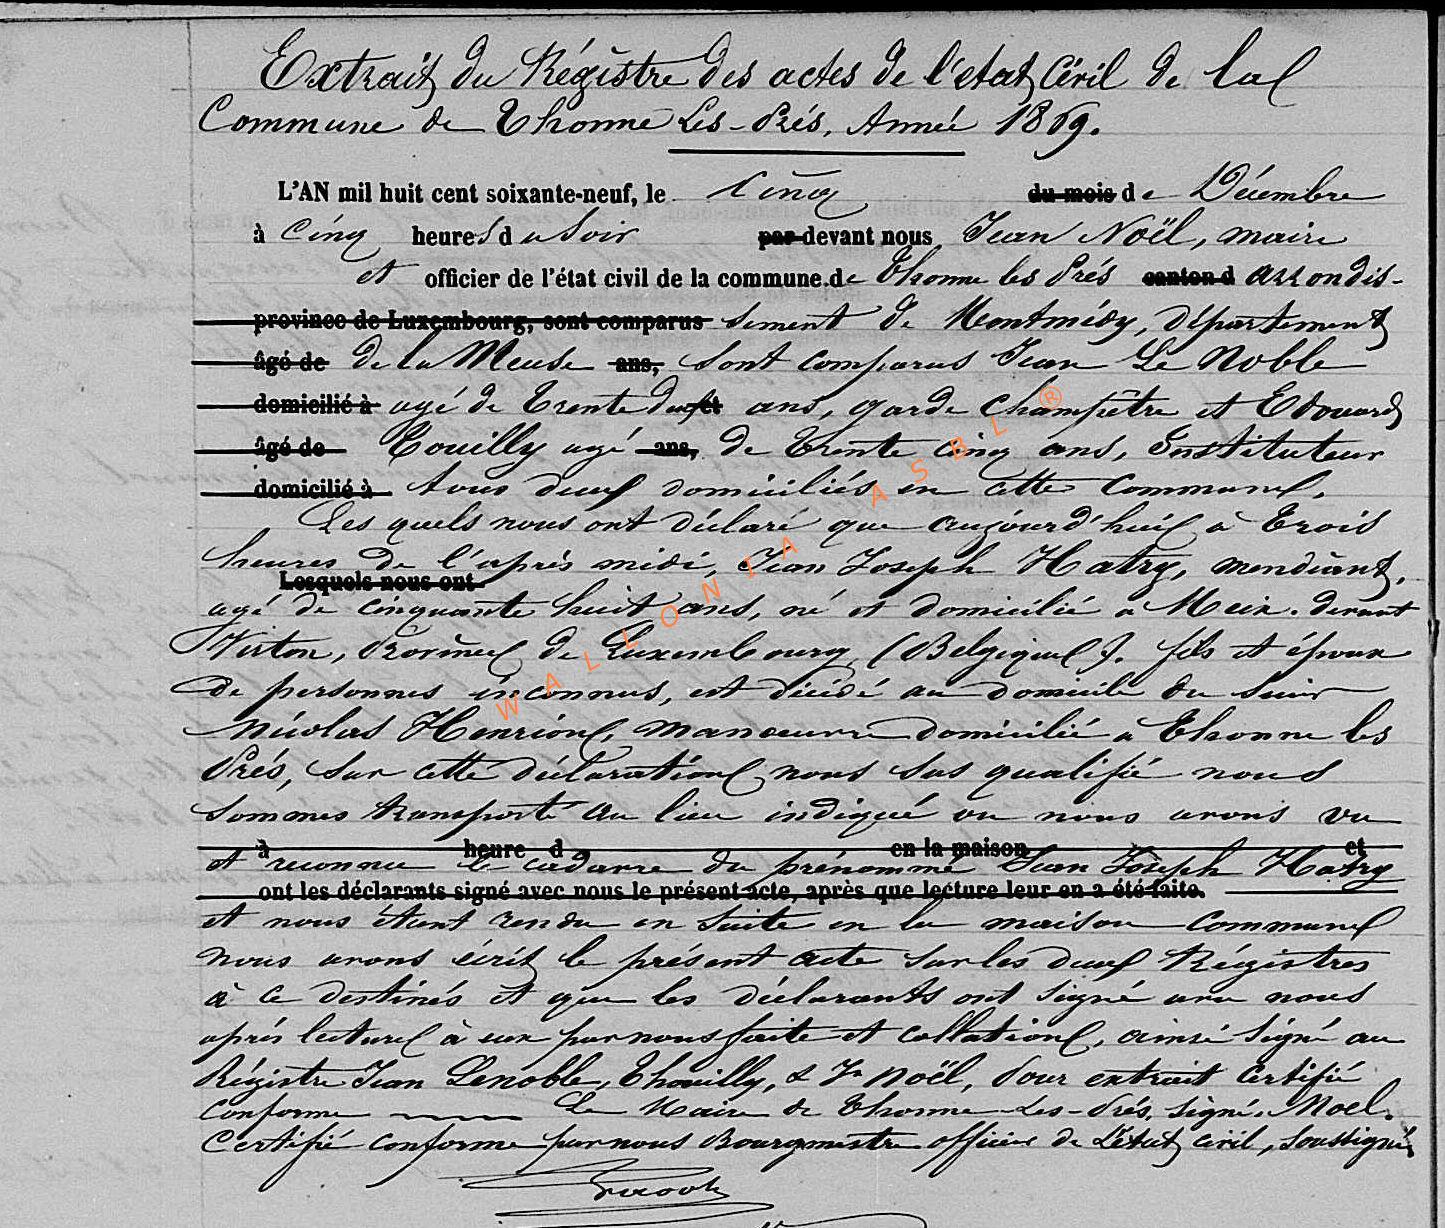 Extrait du Régistre des actes de l'état Civil de la
Commune de Thonne Les-Prés, Année 1869.
L'AN mil huit cent soixante-neuf, le Cinq du mois de Décembre
à Cinq heures du Soir par devant nous Jean Noël, maire
et officier de l'état civil de la commune de Thonne les Prés canton d arrondis-
province de Luxembourg, sont comparus sement de Montmédy, département
âgé de de la Meuse ans, sont comparus Jean Le Noble
domicilié à agé de Trente deux et ans, garde champêtre et Edouard
âgé de Touilly agé ans, de Trente cinq ans, Instituteur
domicilié à tous deux domiciliés en cette Commune,
Les quels nous ont déclaré que aujourd'hui à Trois
heures de l'après midi, Jean Joseph Hatry, mendiant,
Lesquels nous ont
agé de cinquante huit ans, né et domicilié a Meix. devant
Virton, Province de Luxembourg (Belgique). fils et époux
de personnes inconnus, est décédé au domicile du sieur
Nicolas Henrion, manoeuvre domicilié a Thonne les
Prés, Sur cette déclaration nous sus qualifié nous
sommes transporté au lieu indiqué ou nous avons vu
à heure d en la maison et
et reconnu le cadavre du prénommé Jean Joseph Hatry
ont les déclarants signé avec nous le présent acte, après que lecture leur en a été faite.
et nous étant rendu en suite en la maison Commune
nous avons écrit le présent acte sur les deux Régistres
à ce destinés et que les déclarants ont signé avec nous
après lecture à eux par nous faite et collation, ainsi signé au
Régistre Jean Lenoble, Thouilly, & Jn Noël, Pour extrait Certifié
Conforme Le Maire de Thonne-Les-Prés, signé, Noel.
Certifié conforme par nous Bourgmestre officier de L'état civil, soussigné
WALLONIA ASBL ®